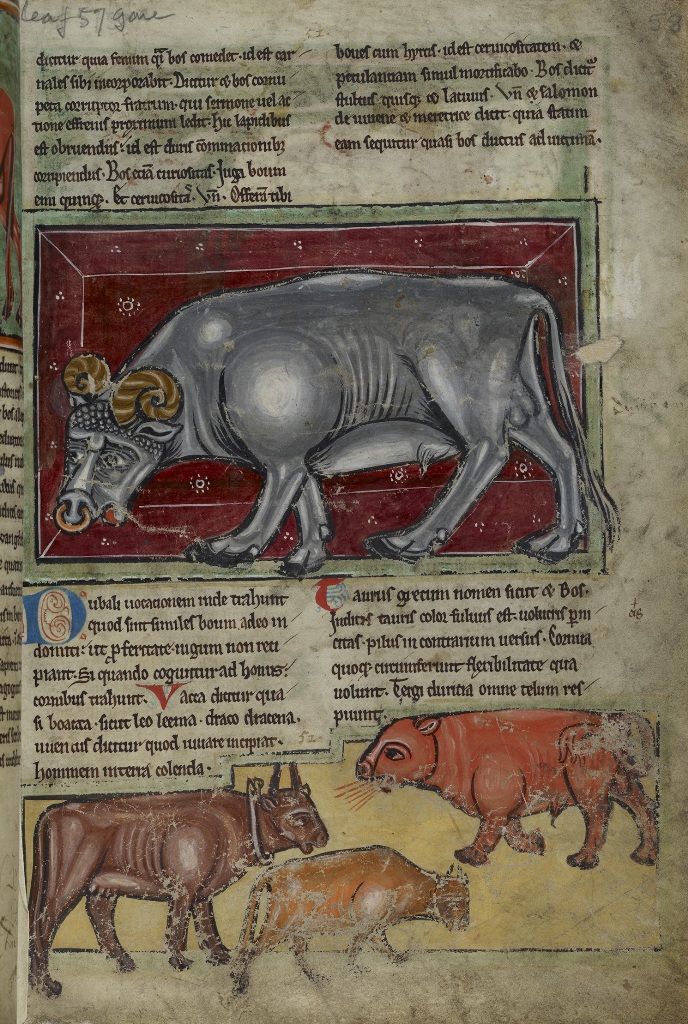 leaf 57 gone
58
dicitur quia fenum qͣi bos comedet · id est car
nales sibi incorporabit · Dicitur & bos cornu
peta corruptor fratrum · qui sermone uel ac
tione effrenis proximum ledit · hic lapidibus
est obruendus · id est duris cōminationibȝ
corripiendus · Bos eciā curiositas · Iugi boum
emi quinqȝ · Et ceruicositaˢ · Vn̄ · Offerā tibi
boues cum hyrcis · id est ceruicositatem · &
petulantiam simul mortificabo · Bos dicit᷑
stultus quisqȝ & lasciuus · Vn̄ & salomon
de iuuene & meretrice dicit · quia statim
eam sequitur quasi bos ductus ad uictimā ·
Dubali uocationem inde trahunt
quod sint similes boum adeo in
domiti · ut p̄ feritate iugum non reci
piant · Si quando coguntur ad honus ·
cornibus trahunt · Vacca dicitur qua
si boacca · sicut leo leena · draco dracena ·
iuuencus dicitur quod iuuare incipiat ·
hominem in terra colenda ·
52
Taurus grecum nomen sicut & Bos ·
Indicis tauris color fuluus est · uolucris p̄ni
citas · pilus in contrarium uersus · Cornua
quoqȝ circumferunt flexibilitate qua
uolunt · Tergi duricia omne telum res
puunt ·